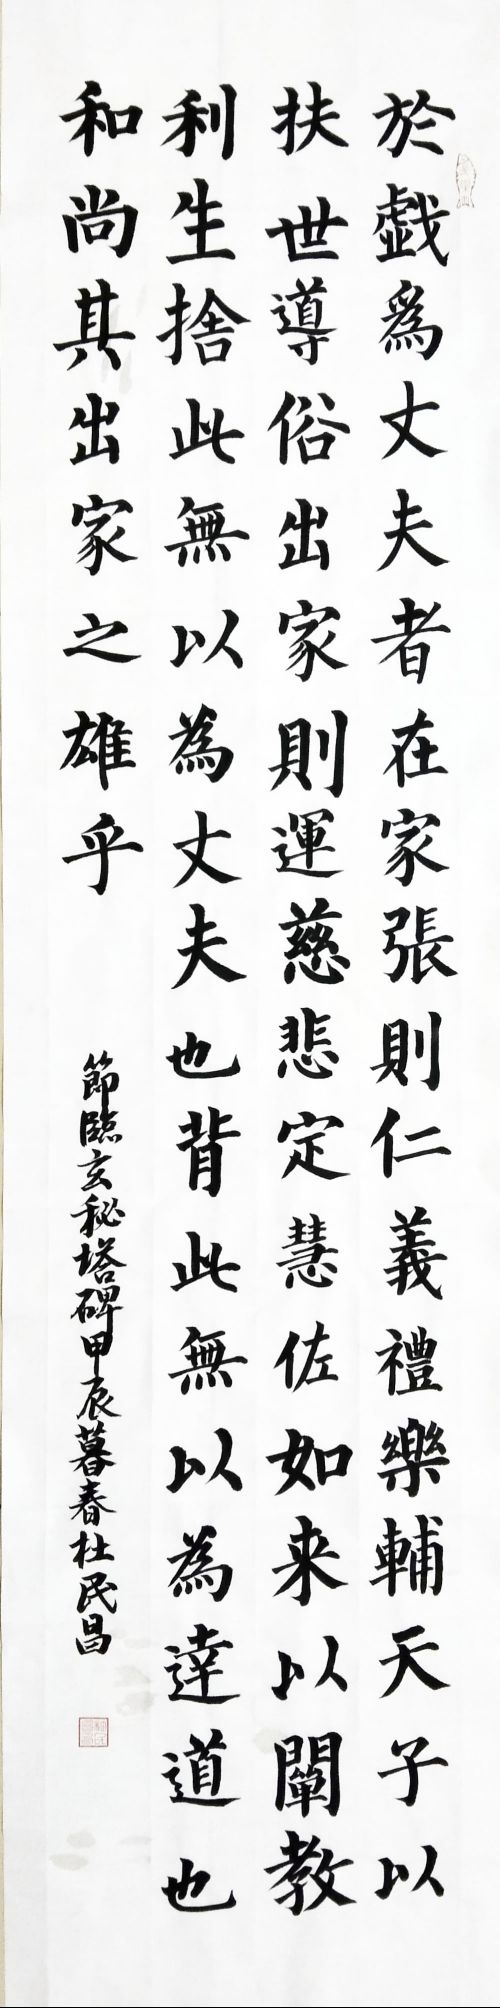 於戲爲丈夫者在家張則仁義禮樂輔天子以
扶世導俗出家則運慈悲定慧佐如来以闡教
利生捨此無以為丈夫也背此無以為達道也
和尚其出家之雄乎
節臨玄秘塔碑甲辰暮春杜民昌